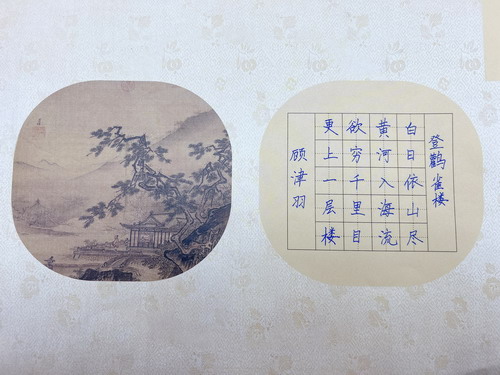 登鹳雀楼
白日依山尽
黄河入海流
欲穷千里目
更上一层楼
顾津羽